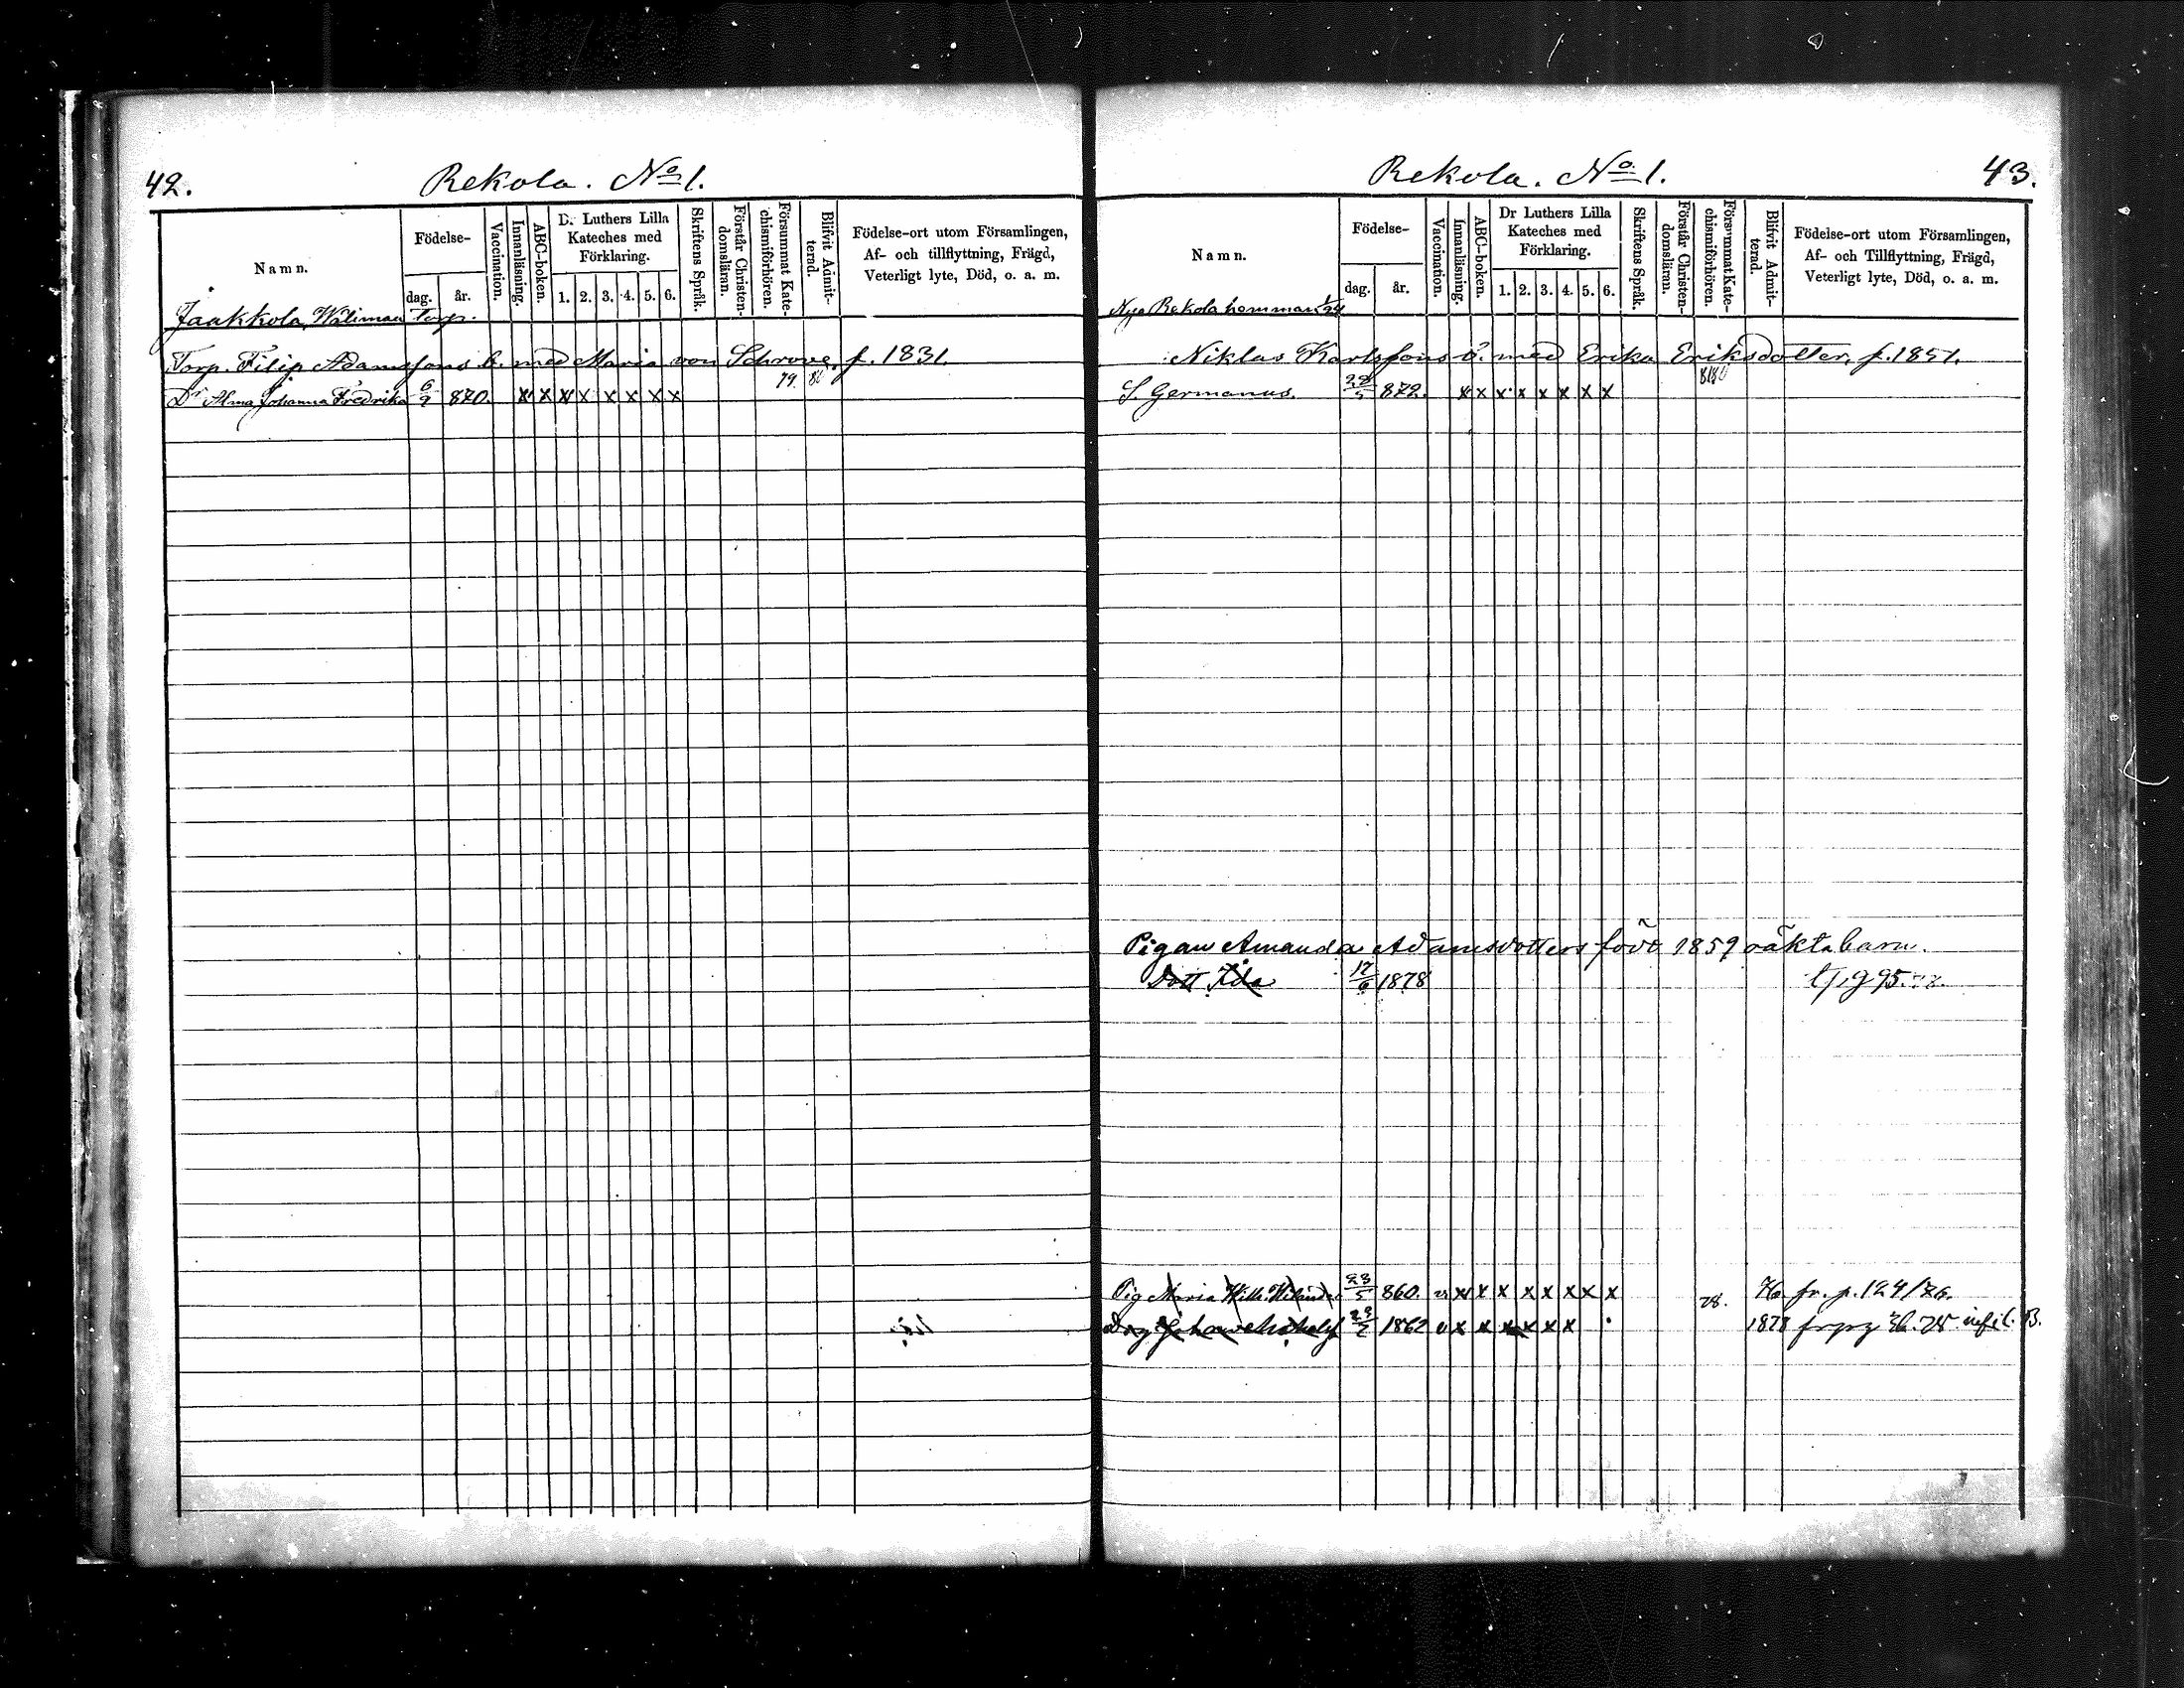 42.
Rekola. No 1.
Namn.
Födelse-
dag.
år.
Vaccination.
Innanläsning.
ABC-boken.
D. Luthers Lilla
Kateches med
Förklaring.
1. 2. 3. 4. 5. 6.
Skriftens Språk.
Förstår Christen-
domsläran.
Försummat Kate-
chismiförhören.
Blifvit Admit-
terad.
Födelse-ort utom Församlingen,
Af- och tillflyttning, Frägd,
Veterligt lyte, Död, o. a. m.
Jaakkola, Wälimaa torp.
Torp. Filip Adamssons b. med Maria von Schrove. f. 1831.
Dr Alma Johanna Fredrika 6/9 870. x x x x x x x x 79. 86
Rekola. No 1.
43.
Namn.
Födelse-
dag.
år.
Vaccination.
Innanläsning.
ABC-boken.
Dr Luthers Lilla
Kateches med
Förklaring.
1. 2. 3. 4. 5. 6.
Skriftens Språk.
Förstår Christen-
domsläran.
Försummat Kate-
chismiförhören.
Blifvit Admit-
terad.
Födelse-ort utom Församlingen,
Af- och Tillflyttning, Frägd,
Veterligt lyte, Död, o. a. m.
Nya Rekola hemman 1/24
Niklas Karlssons b. med Erika Eriksdotter, f. 1851.
S. Germanus. 22/5 872. x x x x x x x x
Pigan Amanda Adamsdotters född 1859 oäkta barn.
Dott Ida 17/6 1878
Pig Maria Wilh. 23/5 860. v x x x x x x x x 78. 76 fr. p. 124/86.
Drg Johan 23/7 1862 v x x x x x x 1878